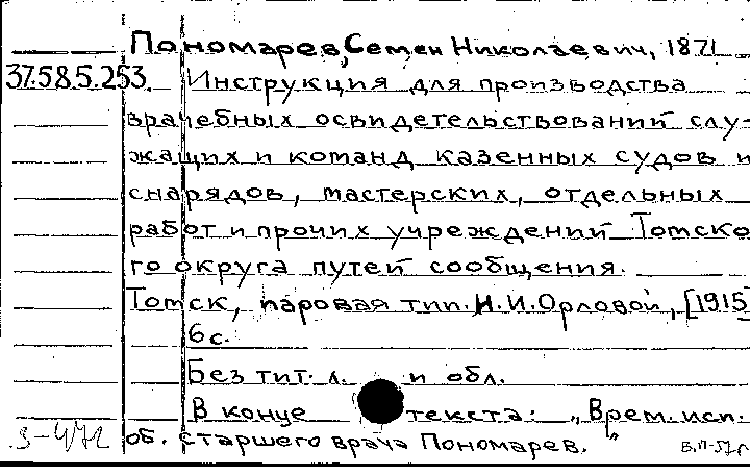 Пономарев, Семен Николаевич, 1871
37.58.5.253. Инструкция для производства
врачебных освидетельствований слу-
жащих и команд казенных судов и
снарядов, мастерских, отдельных
работ и прочих учреждений Томско
го округа путей сообщения.
Томск, паровая тип. Н.И. Орловой, [1915]
6 с.
Без тит. л. и обл.
В конце текста: „Врем. исп.
об. старшего врача Пономарев."